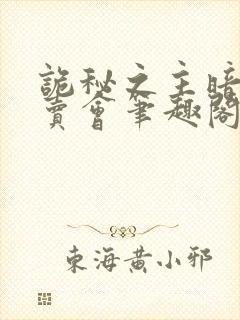 詭秘之主暗
賣會筆趣閣
東海黃小邪